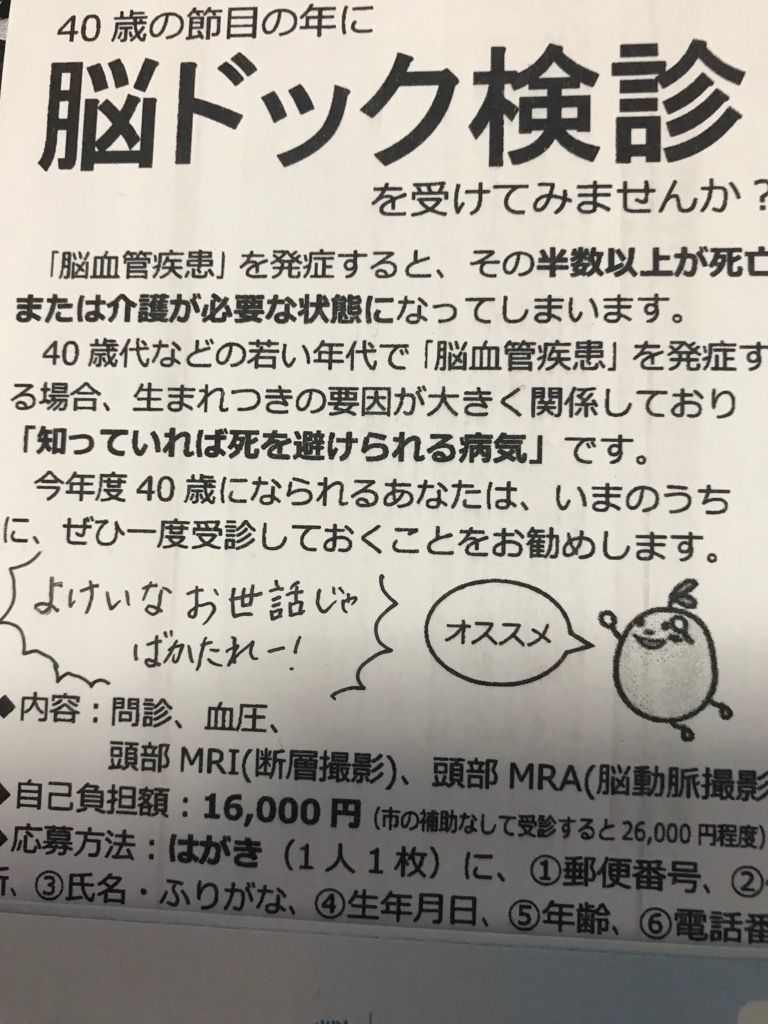 40歳の節目の年に
脳ドック検診
を受けてみませんか?
「脳血管疾患」を発症すると、その半数以上が死亡
または介護が必要な状態になってしまいます。
40歳代などの若い年代で「脳血管疾患」を発症す
る場合、生まれつきの要因が大きく関係しており
「知っていれば死を避けられる病気」です。
今年度40歳になられるあなたは、いまのうち
に、ぜひ一度受診しておくことをお勧めします。
よけいなお世話じゃ
ばかたれー!
オススメ
◆内容:問診、血圧、
頭部MRI(断層撮影)、頭部MRA(脳動脈撮影
◆自己負担額:16,000円(市の補助なしで受診すると26,000円程度)
◆応募方法:はがき(1人1枚)に、①郵便番号、②
所、③氏名・ふりがな、④生年月日、⑤年齢、⑥電話番